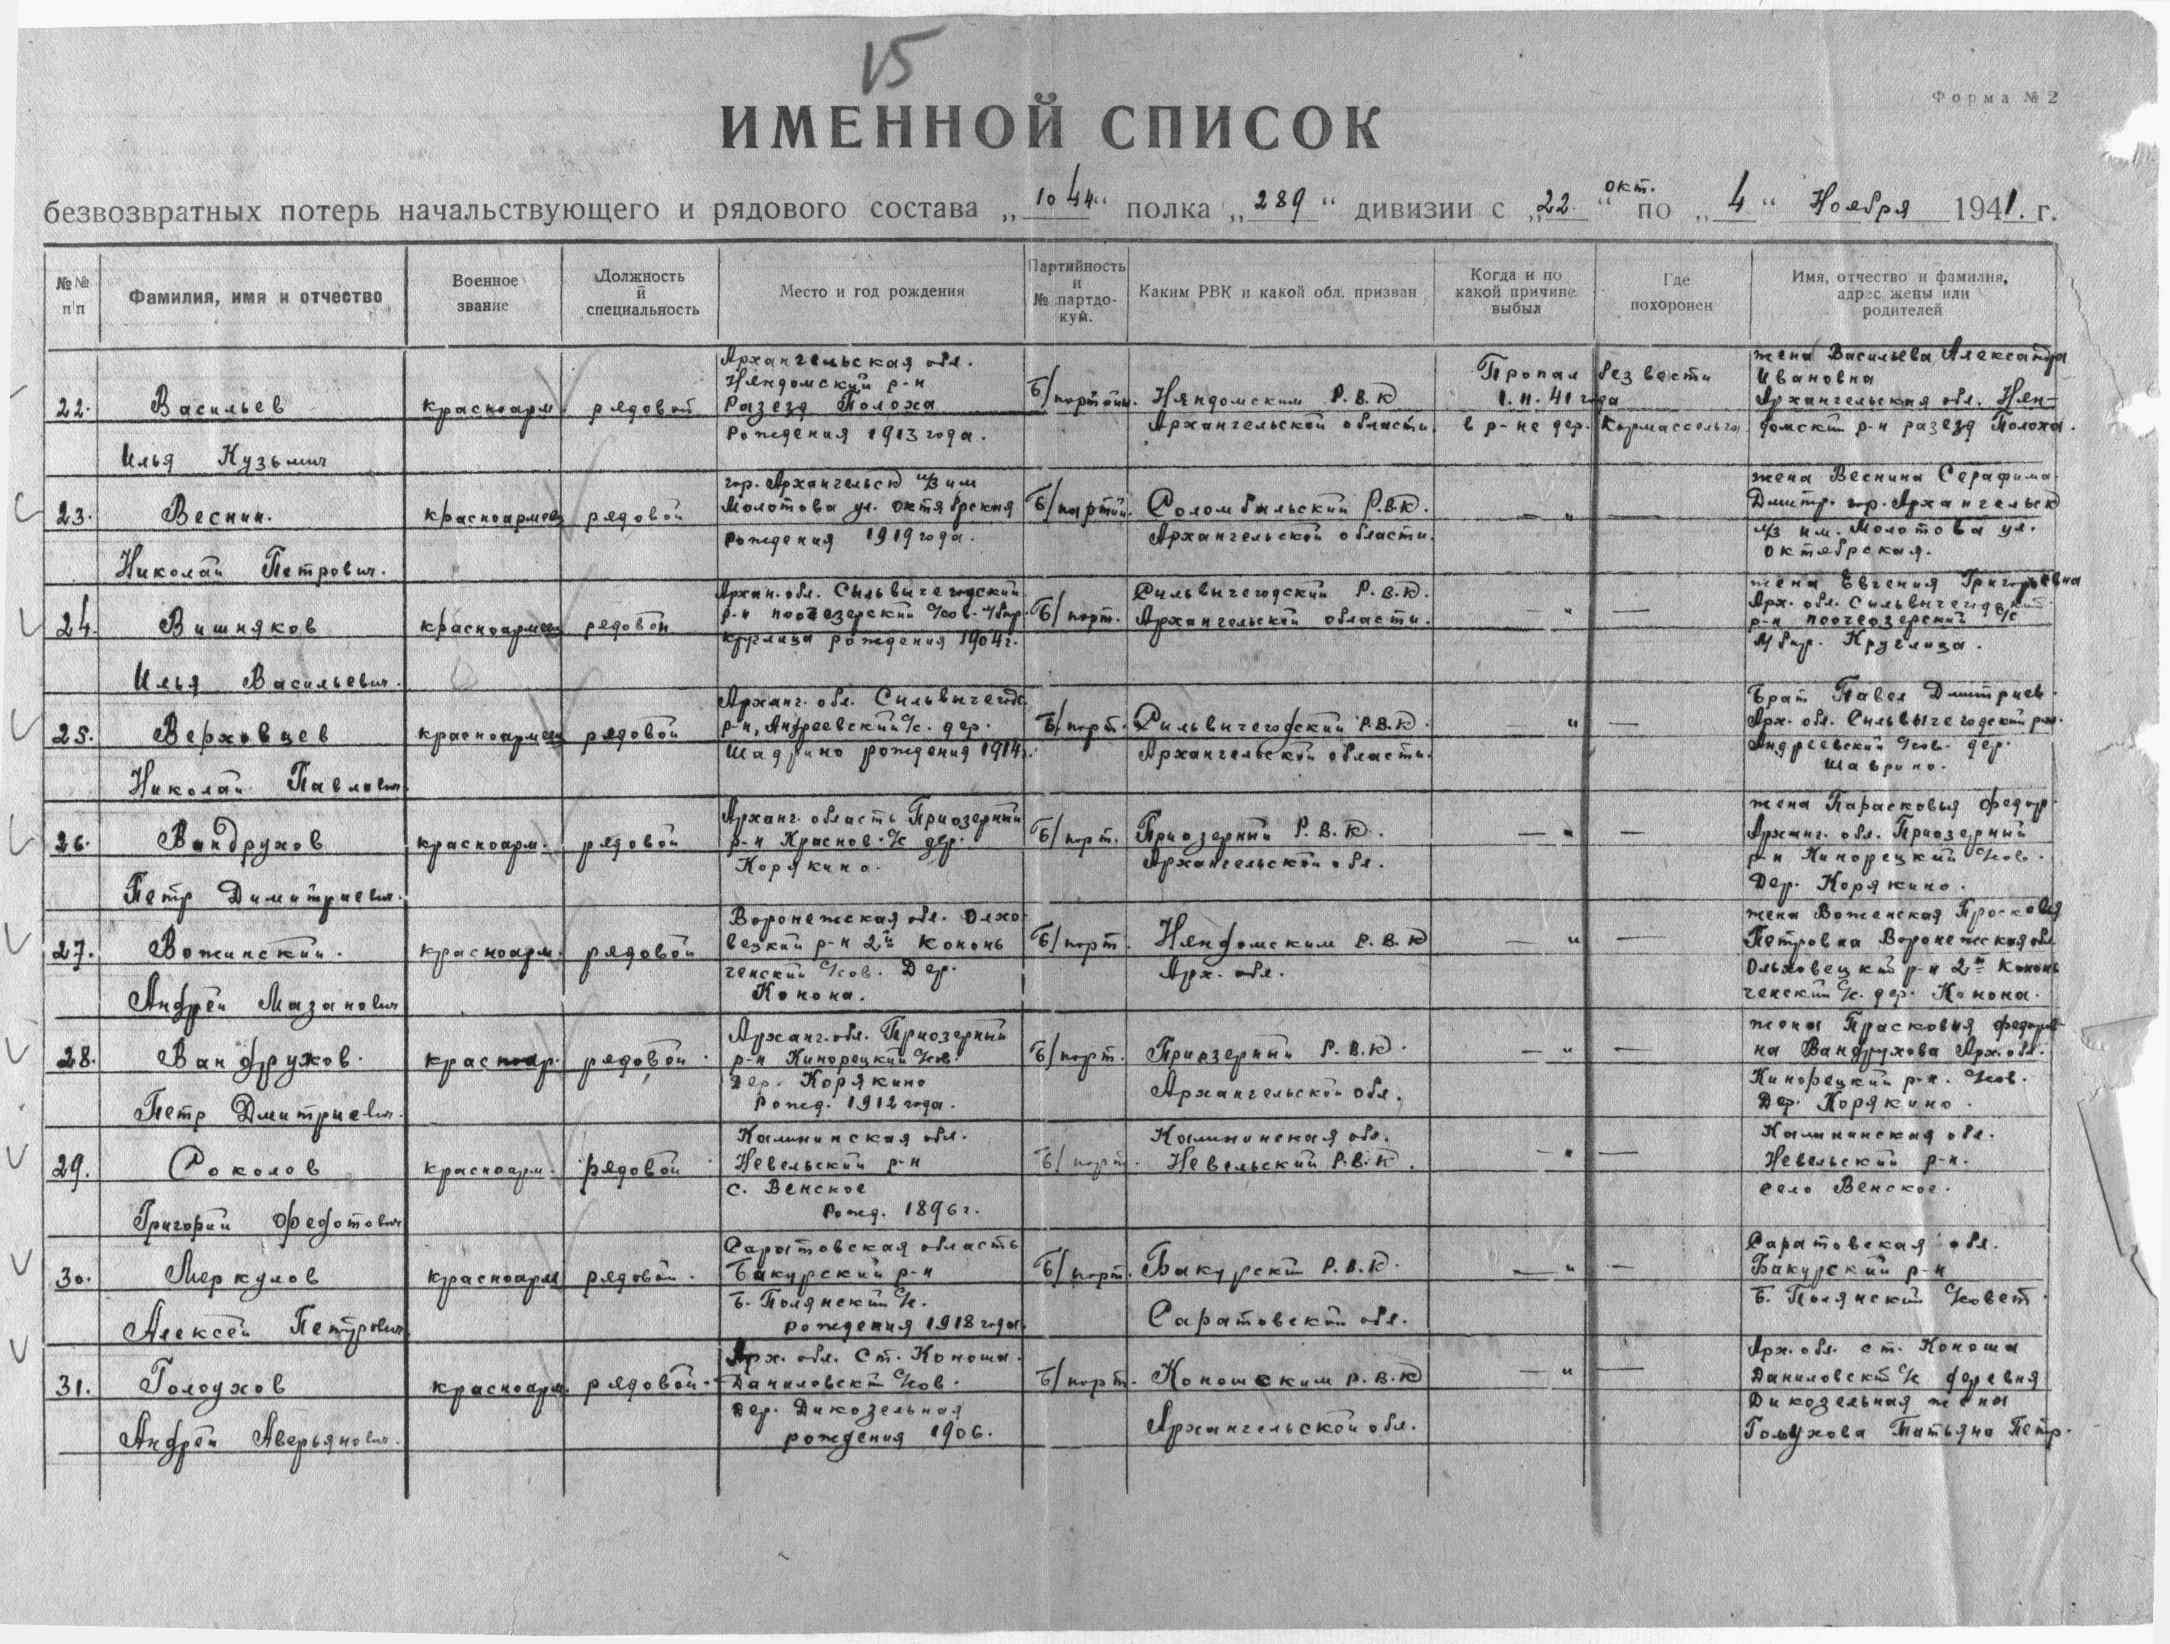 15
Форма № 2
ИМЕННОЙ СПИСОК
безвозвратных потерь начальствующего и рядового состава „1044“ полка „289“ дивизии с „22“ окт. по „4“ Ноября 1941. г.
№№ п/п
Фамилия, имя и отчество
Военное звание
Должность и специальность
Место и год рождения
Партийность и № партдокум.
Каким РВК и какой обл. призван
Когда и по какой причине выбыл
Где похоронен
Имя, отчество и фамилия, адрес жены или родителей
22. Васильев
Илья Кузьмич
красноарм.
рядовой
Архангельская обл.
Няндомский р-н
Разезд Полоха
Рождения 1913 года.
Б/партийн.
Няндомским Р.В.К
Архангельской области
Пропал без вести
1.11.41 года
в р-не дер.
жена Васильева Александра
Ивановна
Архангельская обл. Нян-
домский р-н разезд Полоха.
23. Веснин.
Николай Петрович.
красноармеец
рядовой
гор. Архангельск им
Молотова ул. Октябрская
рождения 1919 года.
Б/партий.
Соломбальский Р.В.К.
Архангельской области.
— " —
жена Веснина Серафима
Дмитр. гор. Архангельск
им. Молотова ул.
Октябрская.
24. Вишняков
Илья Васильевич.
красноармеец
рядовой
Архан. обл. Сильвычегодский
р-н
Круглица рождения 1904 г.
Б/парт.
Сильвычегодский Р.В.К.
Архангельской области.
— " —
жена Евгения Григорьевна
Арх. обл. Сильвычегодский
р-н
Круглица.
25. Верховцев
Николай Павлович
красноармеец
рядовой
Арханг. обл. Сильвычегодс.
р-н, Андреевский с/с. дер.
Шадрино рождения 1914г.
Б/парт.
Сильвичегодский Р.В.К.
Архангельской области.
— " —
Брат Павел Дмитриев.
Арх. обл. Сильвычегодский р-н.
Андреевский с/сов. дер.
26. Вандрухов
Петр Димитриевич.
красноарм.
рядовой
Арханг. область Приозерный
р-н Краснов. с/с дер.
Корякино.
Б/парт.
Приозерный Р.В.К.
Архангельской обл.
— " —
жена Парасковья Федор.
Арханг. обл. Приозерный
р-н Кинорецкий с/сов.
Дер. Корякино.
27. Вожинский.
Андрей Мазанович
красноарм.
рядовой
Воронежская обл. Ольхо-
вецкий р-н 2й Кононь
ченский с/сов. Дер.
Конона.
Б/парт.
Няндомским Р.В.К
Арх. обл.
— " —
жена Воженская Просковия
Петровна Воронежская обл
Ольховецкий р-н 2й Кононь
ченский с/с. дер. Конона.
28. Вандрухов.
Петр Дмитриевич.
красноар.
рядовой
Арханг. обл. Приозерный
р-н Кинорецкий с/сов.
Дер. Корякино
Рожд. 1912 года.
Б/парт.
Приозерный Р.В.К.
Архангельской обл.
— " —
жена Прасковия Федоров-
на Вандрухова Арх. обл.
Кинорецкий р-н. с/сов.
Дер. Корякино.
29. Соколов
Григорий Федотович
красноарм.
рядовой
Калининская обл.
Невельский р-н
с. Венское
Рожд. 1896 г.
Б/парт.
Калининская обл.
Невельский Р.В.К.
— " —
Калининская обл.
Невельский р-н.
село Венское.
30. Меркулов
Алексей Петрович
красноарм
рядовой.
Саратовская область
Бакурский р-н
Б. Полянский с/с.
рождения 1918 года.
Б/парт.
Бакурский Р.В.К.
Саратовской обл.
— " —
Саратовская обл.
Бакурский р-н
Б. Полянский с/совет.
31. Голоухов
Андрей Аверьянович.
красноарм.
рядовой.
Арх. обл. Ст. Коноша.
Даниловский с/сов.
Дер. Дикозельная
рождения 1906.
Б/парт.
Коношским Р.В.К
Архангельской обл.
— " —
Арх. обл. ст. Коноша
Даниловский с/с деревня
Дикозельная жена
Голоухова Татьяна Петр.